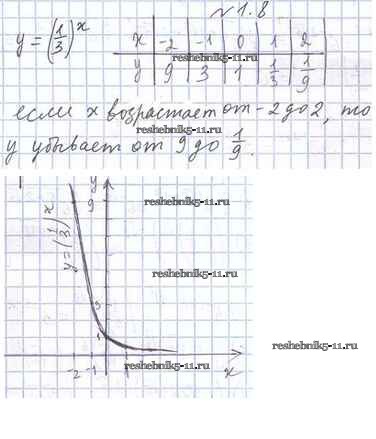 № 1.8
y = (1/3)^x
x | -2 | -1 | 0 | 1 | 2
y | 9 | 3 | 1 | 1/3 | 1/9
если x возрастает от -2 до 2, то
reshebnik5-11.ru
y убывает от 9 до 1/9.
reshebnik5-11.ru
y
9
reshebnik5-11.ru
y = (1/3)^x
reshebnik5-11.ru
3
1
reshebnik5-11.ru
reshebnik5-11.ru
-2 -1 x